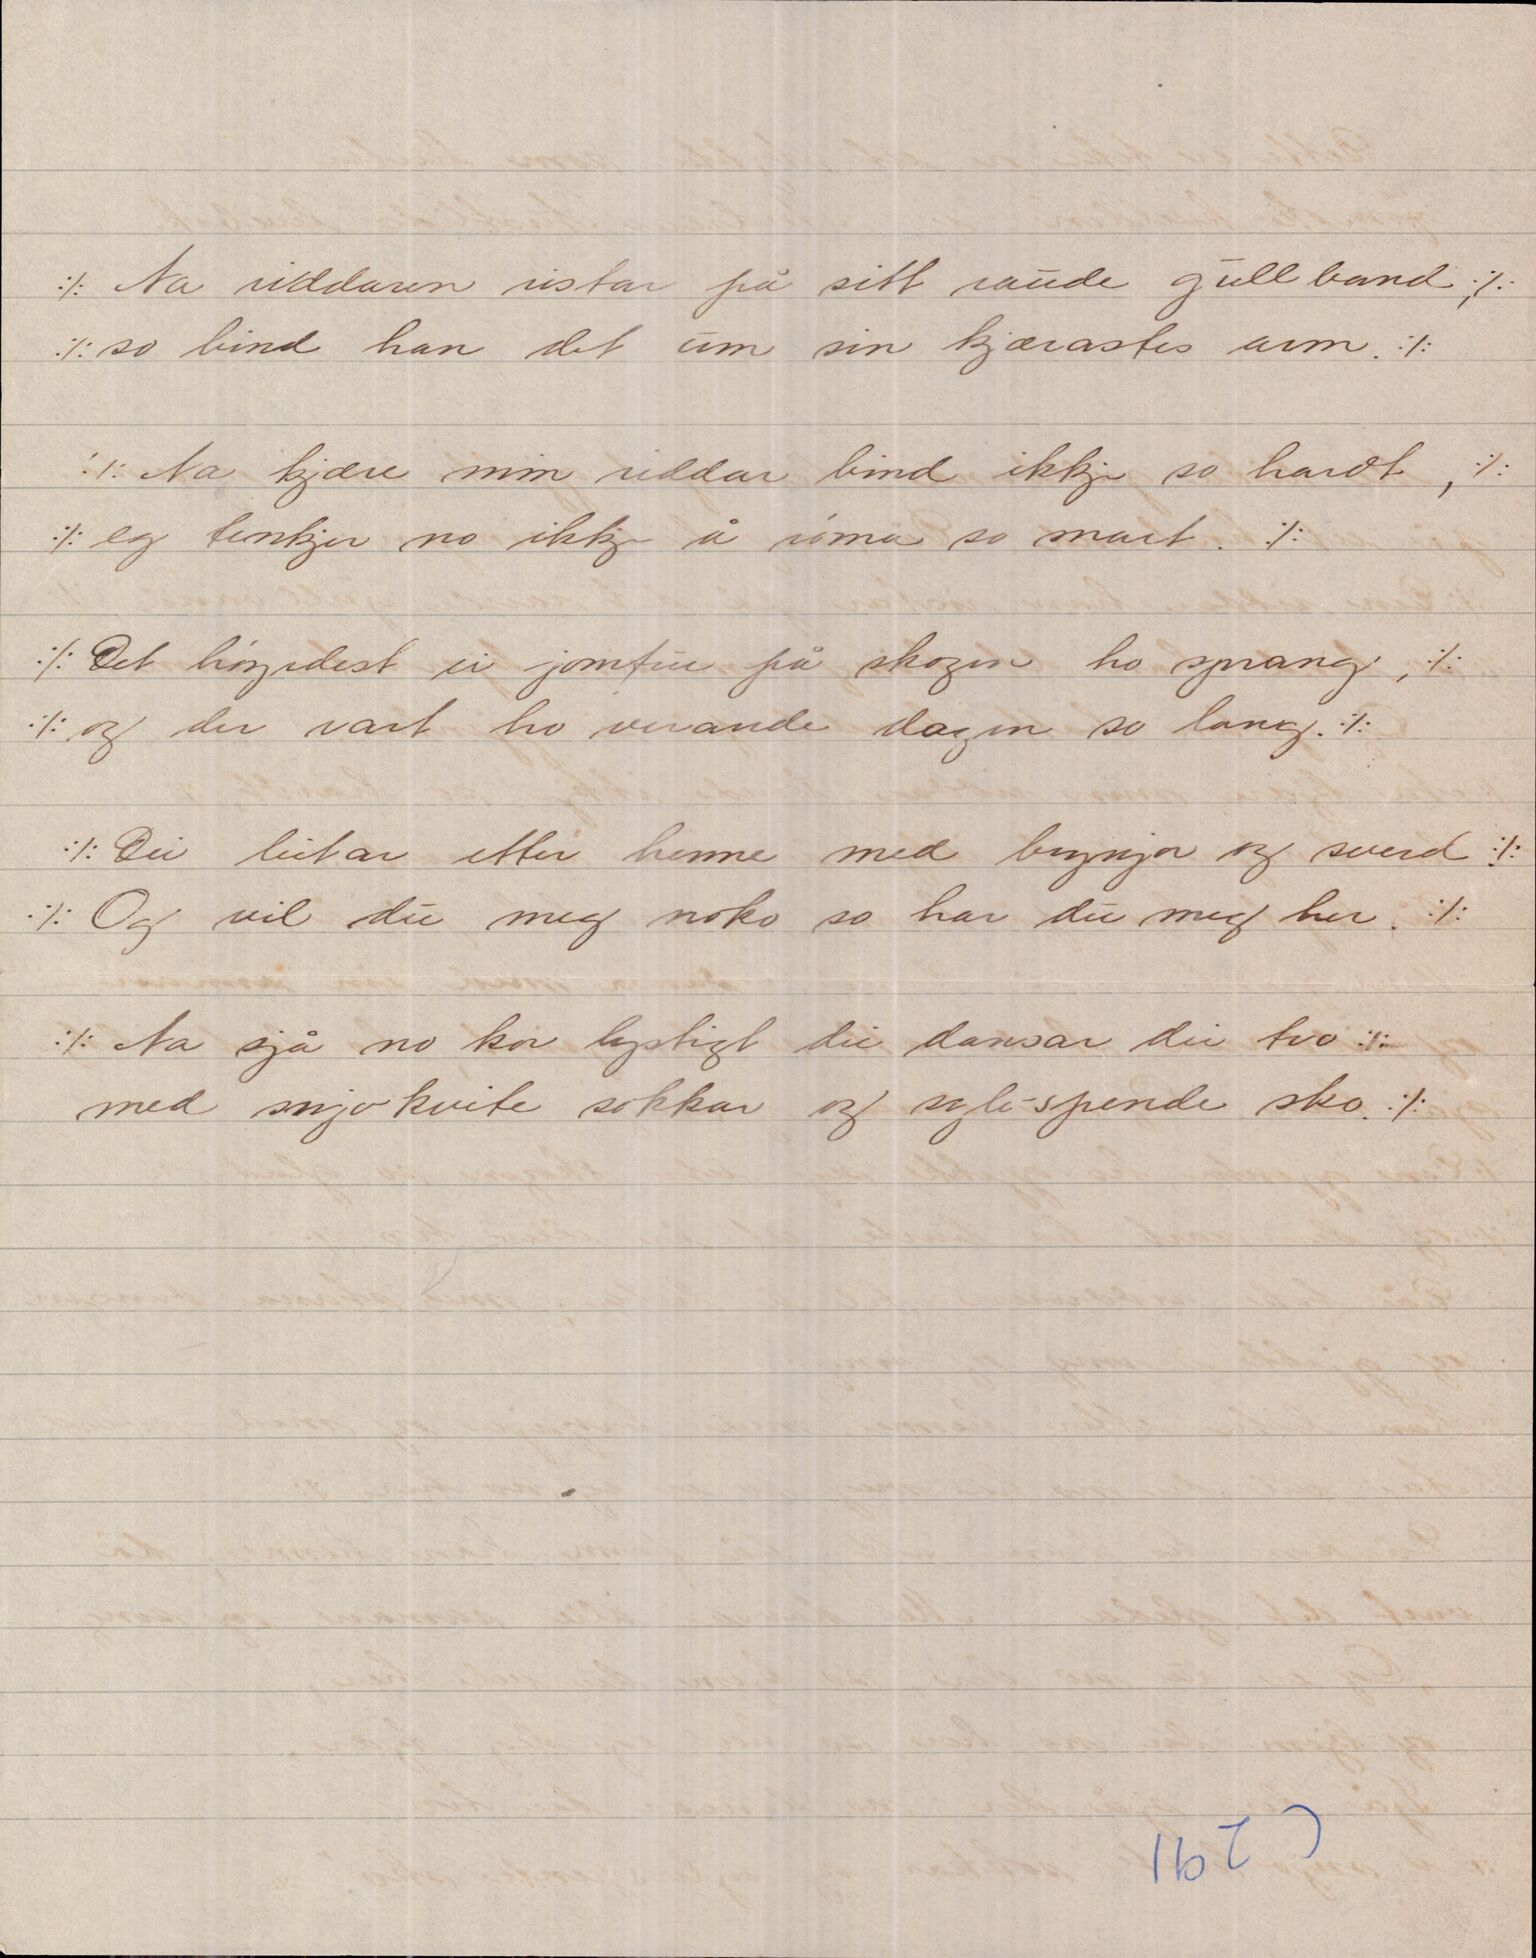 :/: Na riddaren ristar på sitt raude gullband, :/:
:/: so bind han det um sin kjærastes arm. :/:
:/: Na kjære min riddar bind ikkje so hardt, :/:
:/: eg tenkjer no ikkje å róma so mart. :/:
:/: Det höyrdest ei jomfru på skogen ho sprang, :/:
:/: og der vart ho verande dagen so lang. :/:
:/: Dei leitar etter henne med brynjor og sverd :/:
:/: Og vil du meg noko so har du meg her. :/:
:/: Na sjå no kor lystigt dei dansar dei tvo :/:
med snjo kvite sokkar og sylv-spende sko. :/: